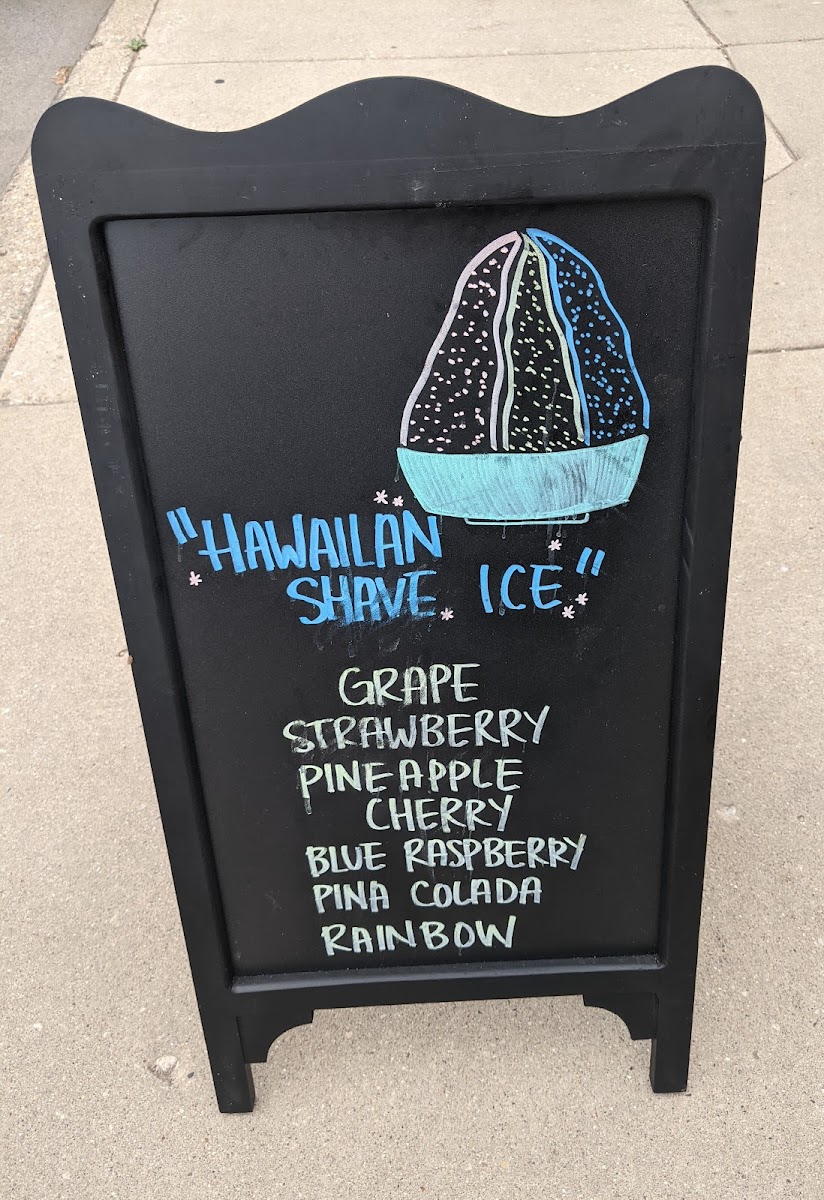 "HAWAILAN
SHAVE ICE"
GRAPE
STRAWBERRY
PINEAPPLE
CHERRY
BLUE RASPBERRY
PINA COLADA
RAINBOW